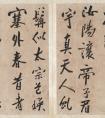 汝陽讓帝子眉
宇真天人虬
鬚似太宗色映
塞外春昔者